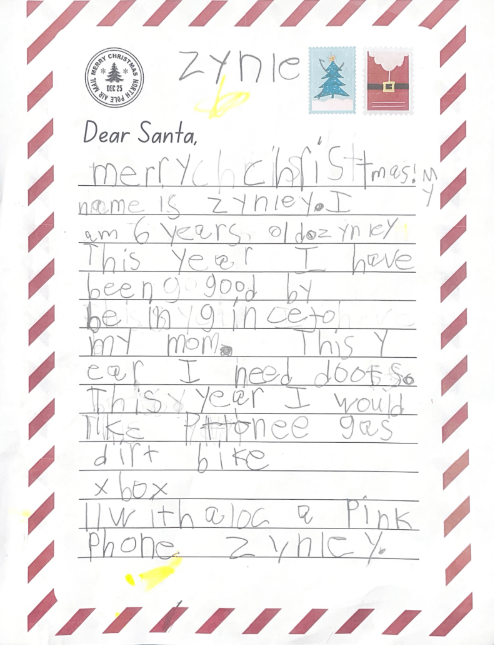 MERRY CHRISTMAS
DEC 25
NORTH POLE AIR MAIL
zynle
Dear Santa,
merry christmas! My
name is zynley. I
am 6 years. old zynley
This year I have
been good by
being ince to
my mom. This y
ear I need doots.
This year I would
like gas
dirt bike
xbox
a Pink
Phone zynley.